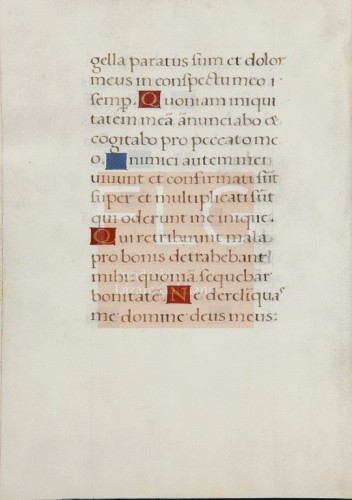 gella paratus sum et dolor
meus in conspectu meo ı
semp. Quoniam iniqui
tatem meā ānunciabo et
cogitabo pro peccato me
o. Inimici autem mei
uiuunt et confirmati sūt
super et multiplicati sūt
qui oderunt me inique.
Qui retribuunt mala
pro bonis detrahebant
mihi: quoniā sequebar
bonitatē. Ne derelīquas
me domine deus meus:
FLG